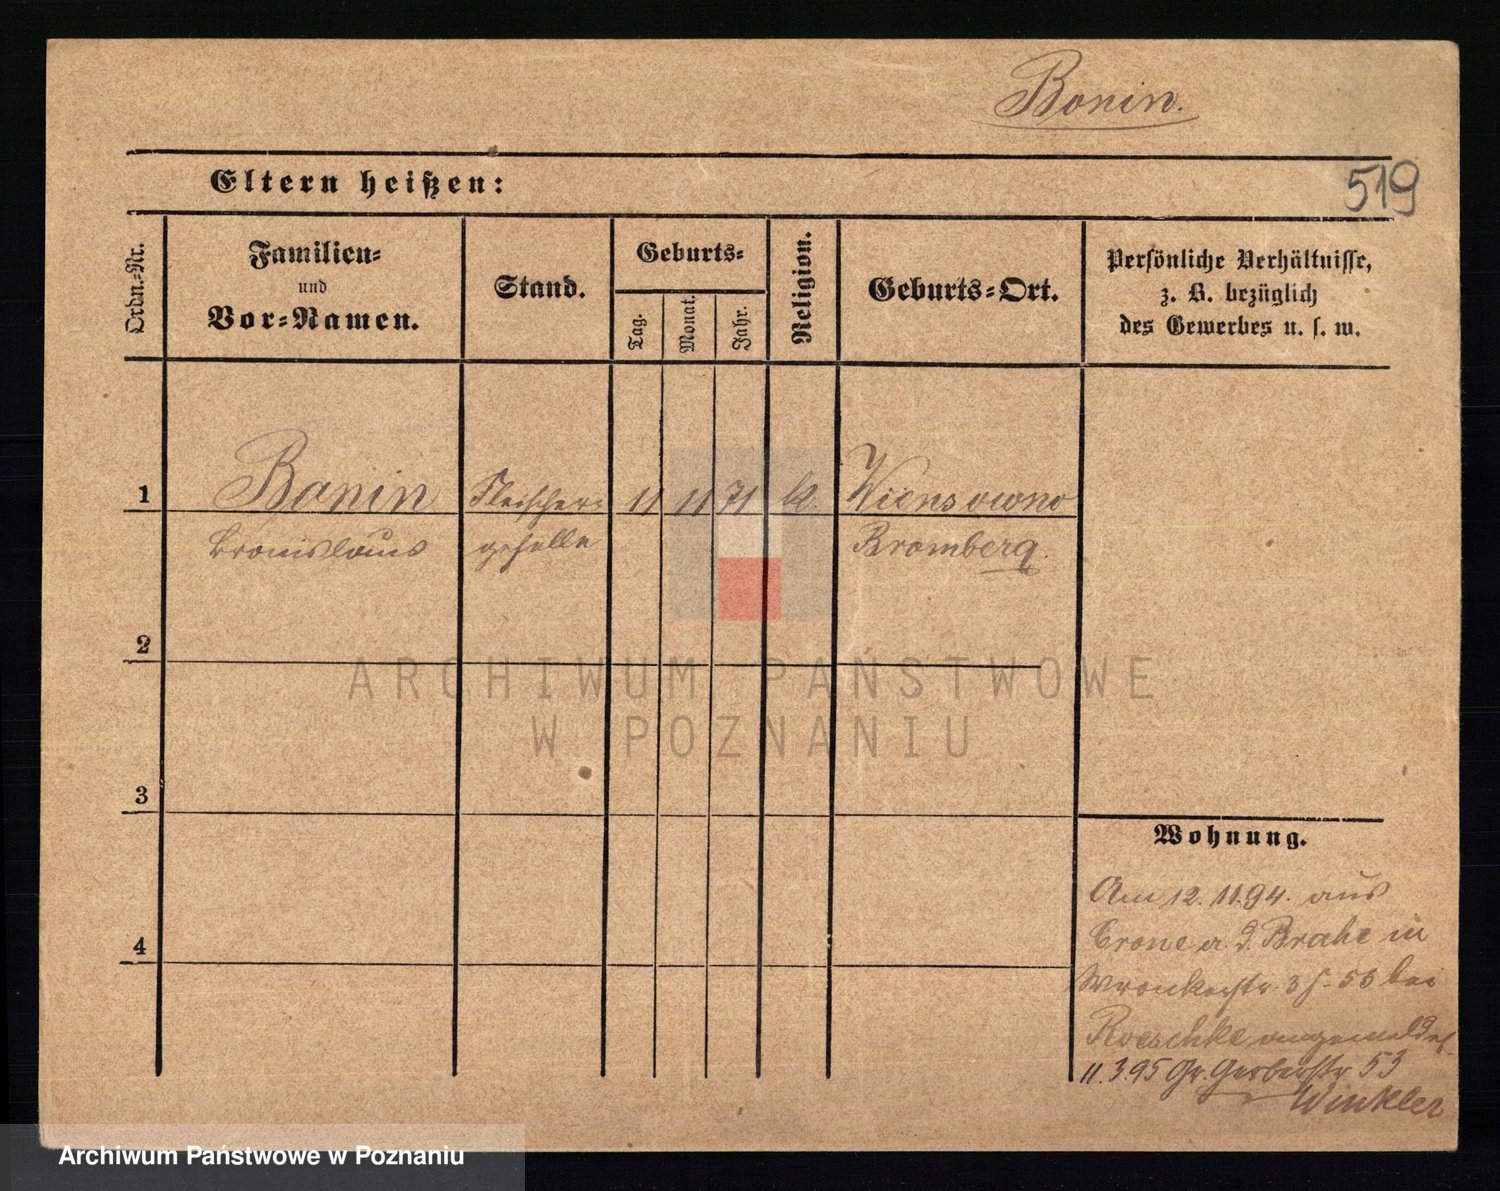 Bonin.
519
Eltern heißen:
Ordn.-Nr.
Familien-
und
Vor-Namen.
Stand.
Geburts-
Tag.
Monat.
Jahr.
Religion.
Geburts-Ort.
Persönliche Verhältnisse,
z. B. bezüglich
des Gewerbes u. s. w.
1 Bonin Fleischer- 11 11 71 k. Wiensowno
Bronislaus geselle Bromberg.
2
3
4
Wohnung.
Am 12.11.94. aus
Crone a. d. Brahe in
Wronkerstr. bei
Roeschke angemeldet
11.3.95 Gr. Gerberstr 53
Winkler
ARCHIWUM PAŃSTWOWE
W POZNANIU
Archiwum Państwowe w Poznaniu